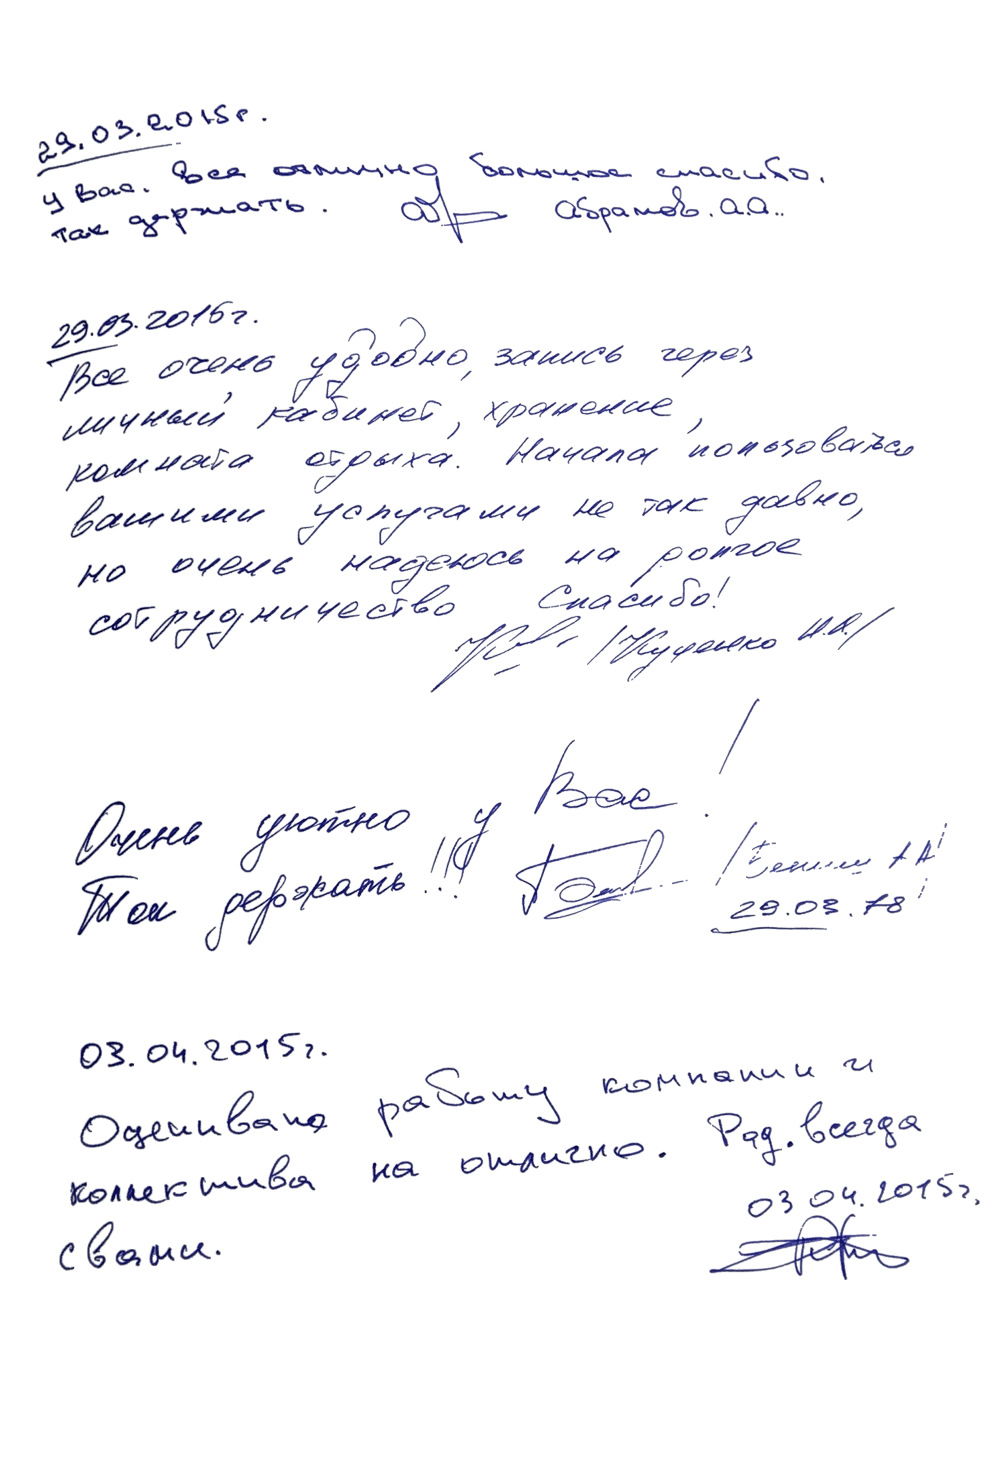 29.03.2015г.
У Вас. Все отлично большое спасибо.
так держать. Абрамов. А.А..
29.03.2015г.
Все очень удобно, запись через
личный кабинет, хранение,
комната отдыха. Начала пользоваться
вашими услугами не так давно,
но очень надеюсь на долгое
сотрудничество Спасибо!
/Куценко И.А./
Очень уютно у Вас!
Так держать!!!
29.03.18
03.04.2015г.
Оценивала работу компании и
коллектива на отлично. Рад. всегда
с вами.
03 04.2015г.